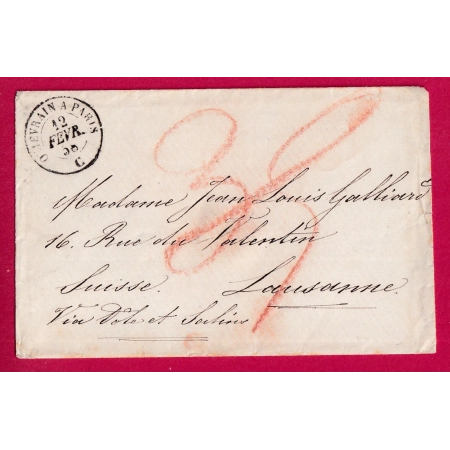 QUIEVRAIN A PARIS
12
FEVR.
C
Madame Jean Louis Galliard
16. Rue du Valentin
Suisse. Lausanne.
Via Dole et Salins